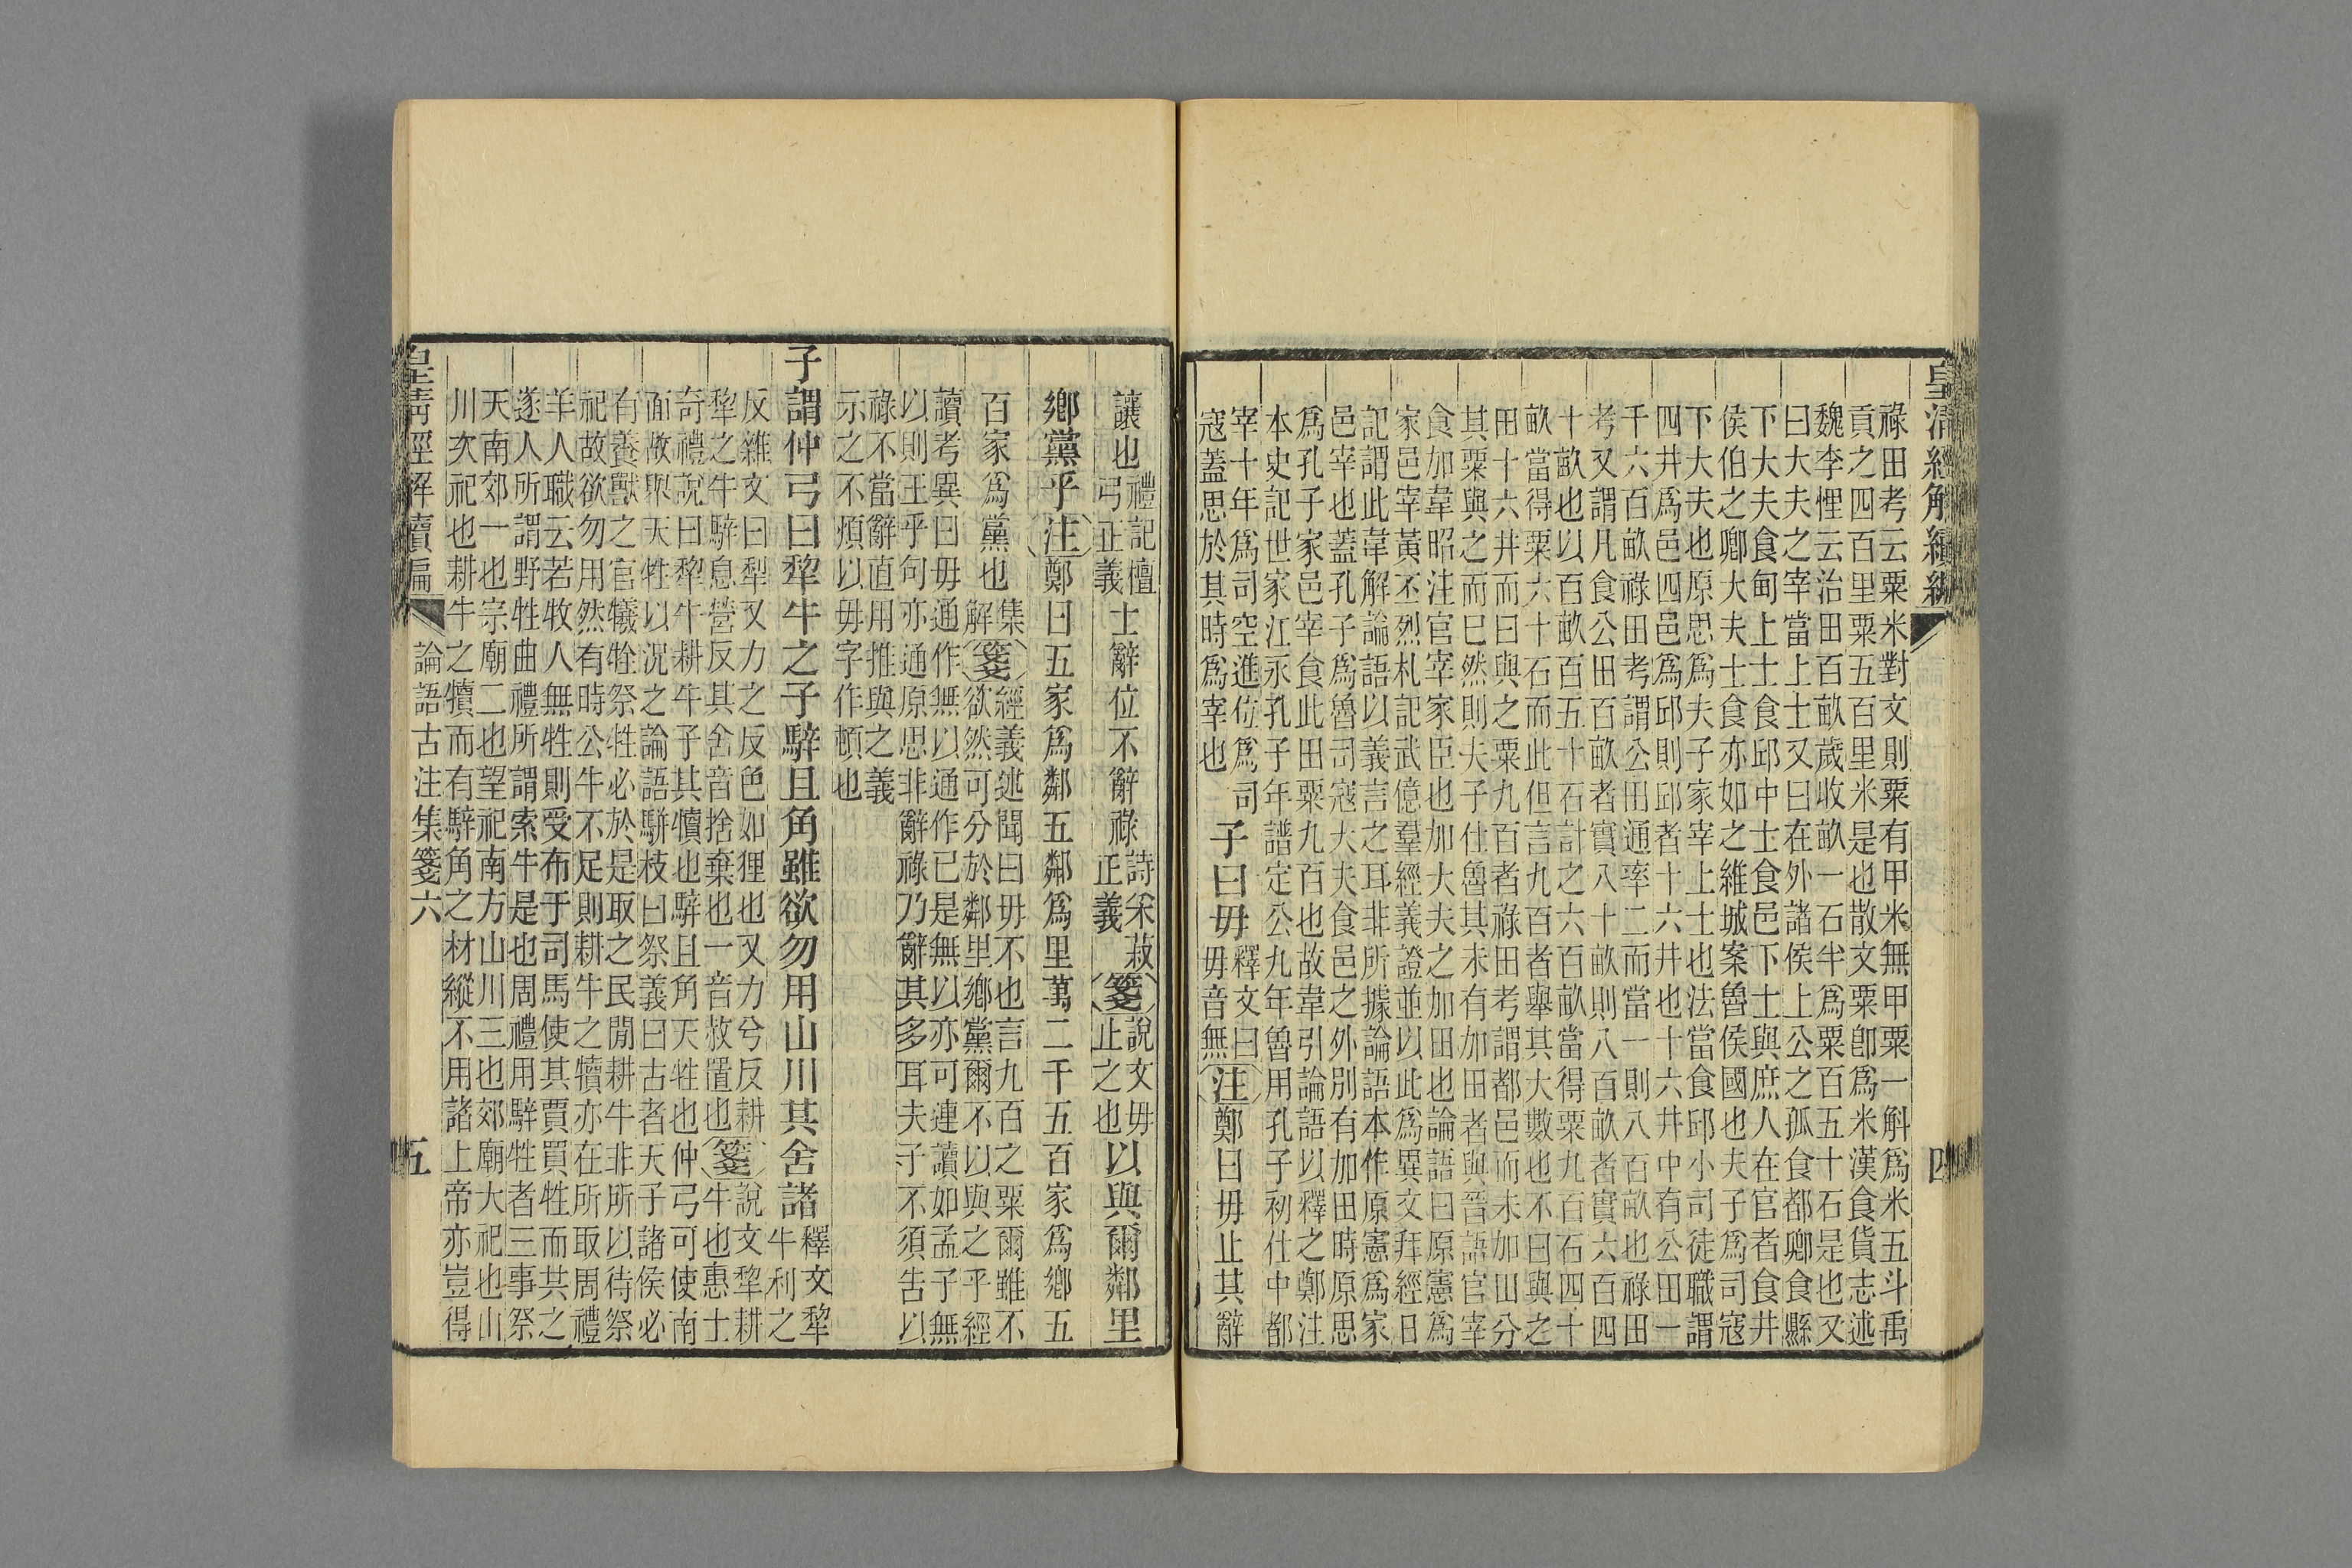 皇清經解續編
四
祿田考云粟米對文則粟有甲米無甲粟一斛爲米五斗禹
貢之四百里粟五百里米是也散文粟卽爲米漢食貨志述
魏李悝云治田百畝歲收畝一石半爲粟百五十石是也又
曰大夫之宰當上士又曰在外諸侯上公之孤食都卿食縣
下大夫食甸上士食邱中士食邑下士與庶人在官者食井
侯伯之卿大夫士食亦如之維城案魯侯國也夫子爲司寇
下大夫也原思爲夫子家宰上士也法當食邱小司徒職謂
四井爲邑四邑爲邱則邱者十六井也十六井中有公田一
千六百畝祿田考謂公田通率二而當一則八百畝也祿田
考又謂凡食公田百畝者實八十畝則八百畝者實六百四
十畝也以百畝百五十石計之六百畝當得粟九百石四十
畝當得粟六十石而此但言九百者舉其大數也不曰與之
田十六井而曰與之粟九百者祿田考謂都邑而未加田分
其粟與之而巳然則夫子仕魯其未有加田者與晉語官宰
食加韋昭注官宰家臣也加大夫之加田也論語曰原憲爲
家邑宰黃丕烈札記武億羣經義證並以此爲異文拜經日
記謂此韋解論語以義言之耳非所據論語本作原憲爲家
邑宰也蓋孔子爲魯司寇大夫食邑之外別有加田時原思
爲孔子家邑宰食此田粟九百也故韋引論語以釋之鄭注
本史記世家江永孔子年譜定公九年魯用孔子初仕中都
宰十年爲司空進位爲司
寇蓋思於其時爲宰也
子曰毋釋文曰毋音無注鄭曰毋止其辭
讓也禮記檀弓正義士辭位不辭祿詩采菽正義箋說文毋止之也以與爾鄰里
鄉黨乎注鄭曰五家爲鄰五鄰爲里萬二千五百家爲鄉五
百家爲黨也集解箋經義述聞曰毋不也言九百之粟爾雖不
欲然可分於鄰里鄉黨爾不以與之乎經
讀考異曰毋通作無以通作已是無以亦可連讀如孟子無
以則王乎句亦通原思非辭祿乃辭其多耳夫子不須告以
祿不當辭直用推與之義
示之不煩以毋字作頓也
子謂仲弓曰犂牛之子騂且角雖欲勿用山川其舍諸釋文犂牛利之
反雜文曰犁又力之反色如狸也又力兮反耕
犂之牛騂息營反其舍音捨棄也一音赦置也箋說文犂耕
牛也惠士
奇禮說曰犂牛耕牛子其犢也騂且角天牲也仲弓可使南
面故舉天牲以況之論語駢枝曰祭義曰古者天子諸侯必
有養獸之官犧牷祭牲必於是取之民閒耕牛非所以待祭
祀故欲勿用然有時公牛不足則耕牛之犢亦在所取周禮
羊人職云若牧人無牲則受布于司馬使其賈買牲而共之
遂人所謂野牲曲禮所謂索牛是也周禮用騂牲者三事祭
天南郊一也宗廟二也望祀南方山川三也郊廟大祀也山
川次祀也耕牛之犢而有騂角之材縱不用諸上帝亦豈得
皇清經解續編
論語古注集箋六
五